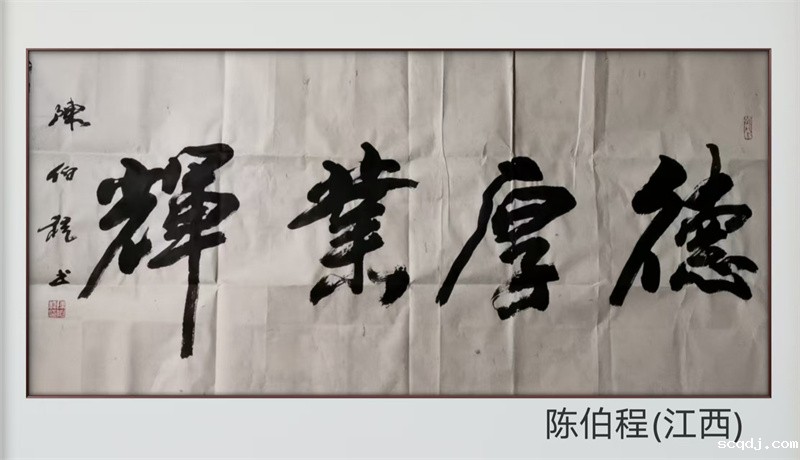 德厚業輝
陳伯程書
陈伯程(江西)
scqdj.com